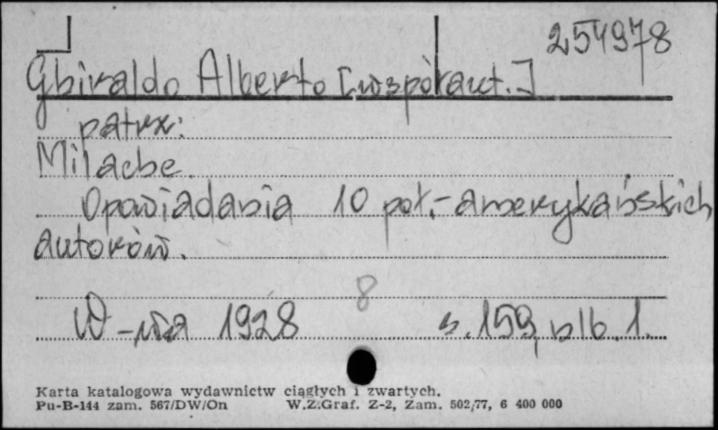 254978
Ghiraldo Alberto [współaut.]
patrz:
Milache.
Opowiadania 10 poł.-amerykańskich
autorów.
8
W-wa 1928 s. 159, nlb. 1.
Karta katalogowa wydawnictw ciągłych i zwartych.
Pu-B-144 zam. 567/DW/On W.Z.Graf. Z-2, Zam. 502/77, 6 400 000